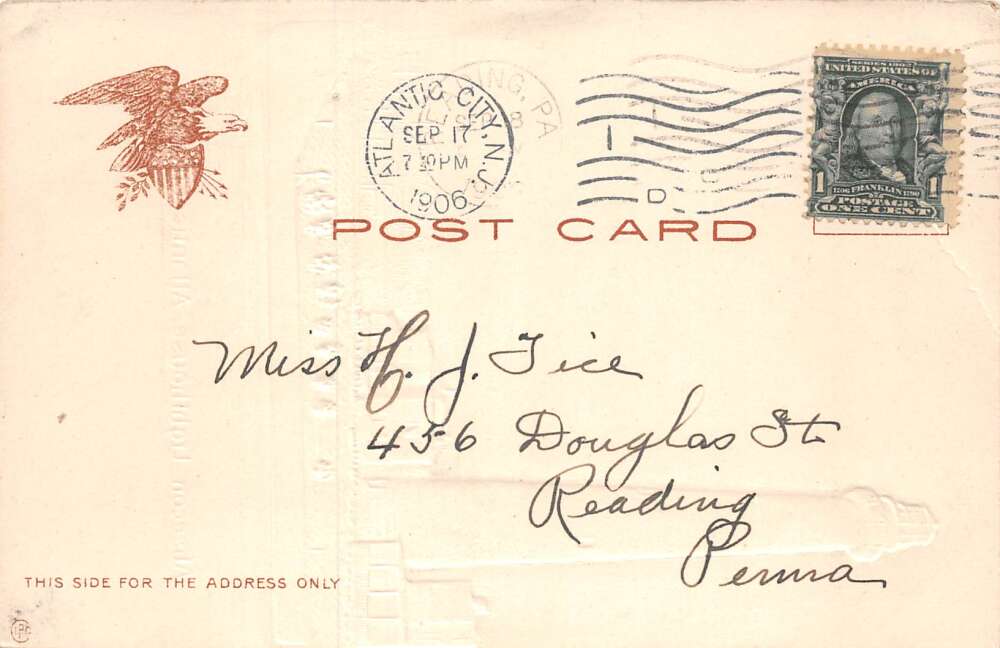 ATLANTIC CITY, N.J.
SEP 17
7 30 PM
1906
READING, PA
I
D
SERIES 1902
UNITED STATES OF
AMERICA
1 1706 FRANKLIN 1790 1
POSTAGE
ONE CENT
POST CARD
Miss H. J. Tice
456 Douglas St
Reading
Penna
THIS SIDE FOR THE ADDRESS ONLY